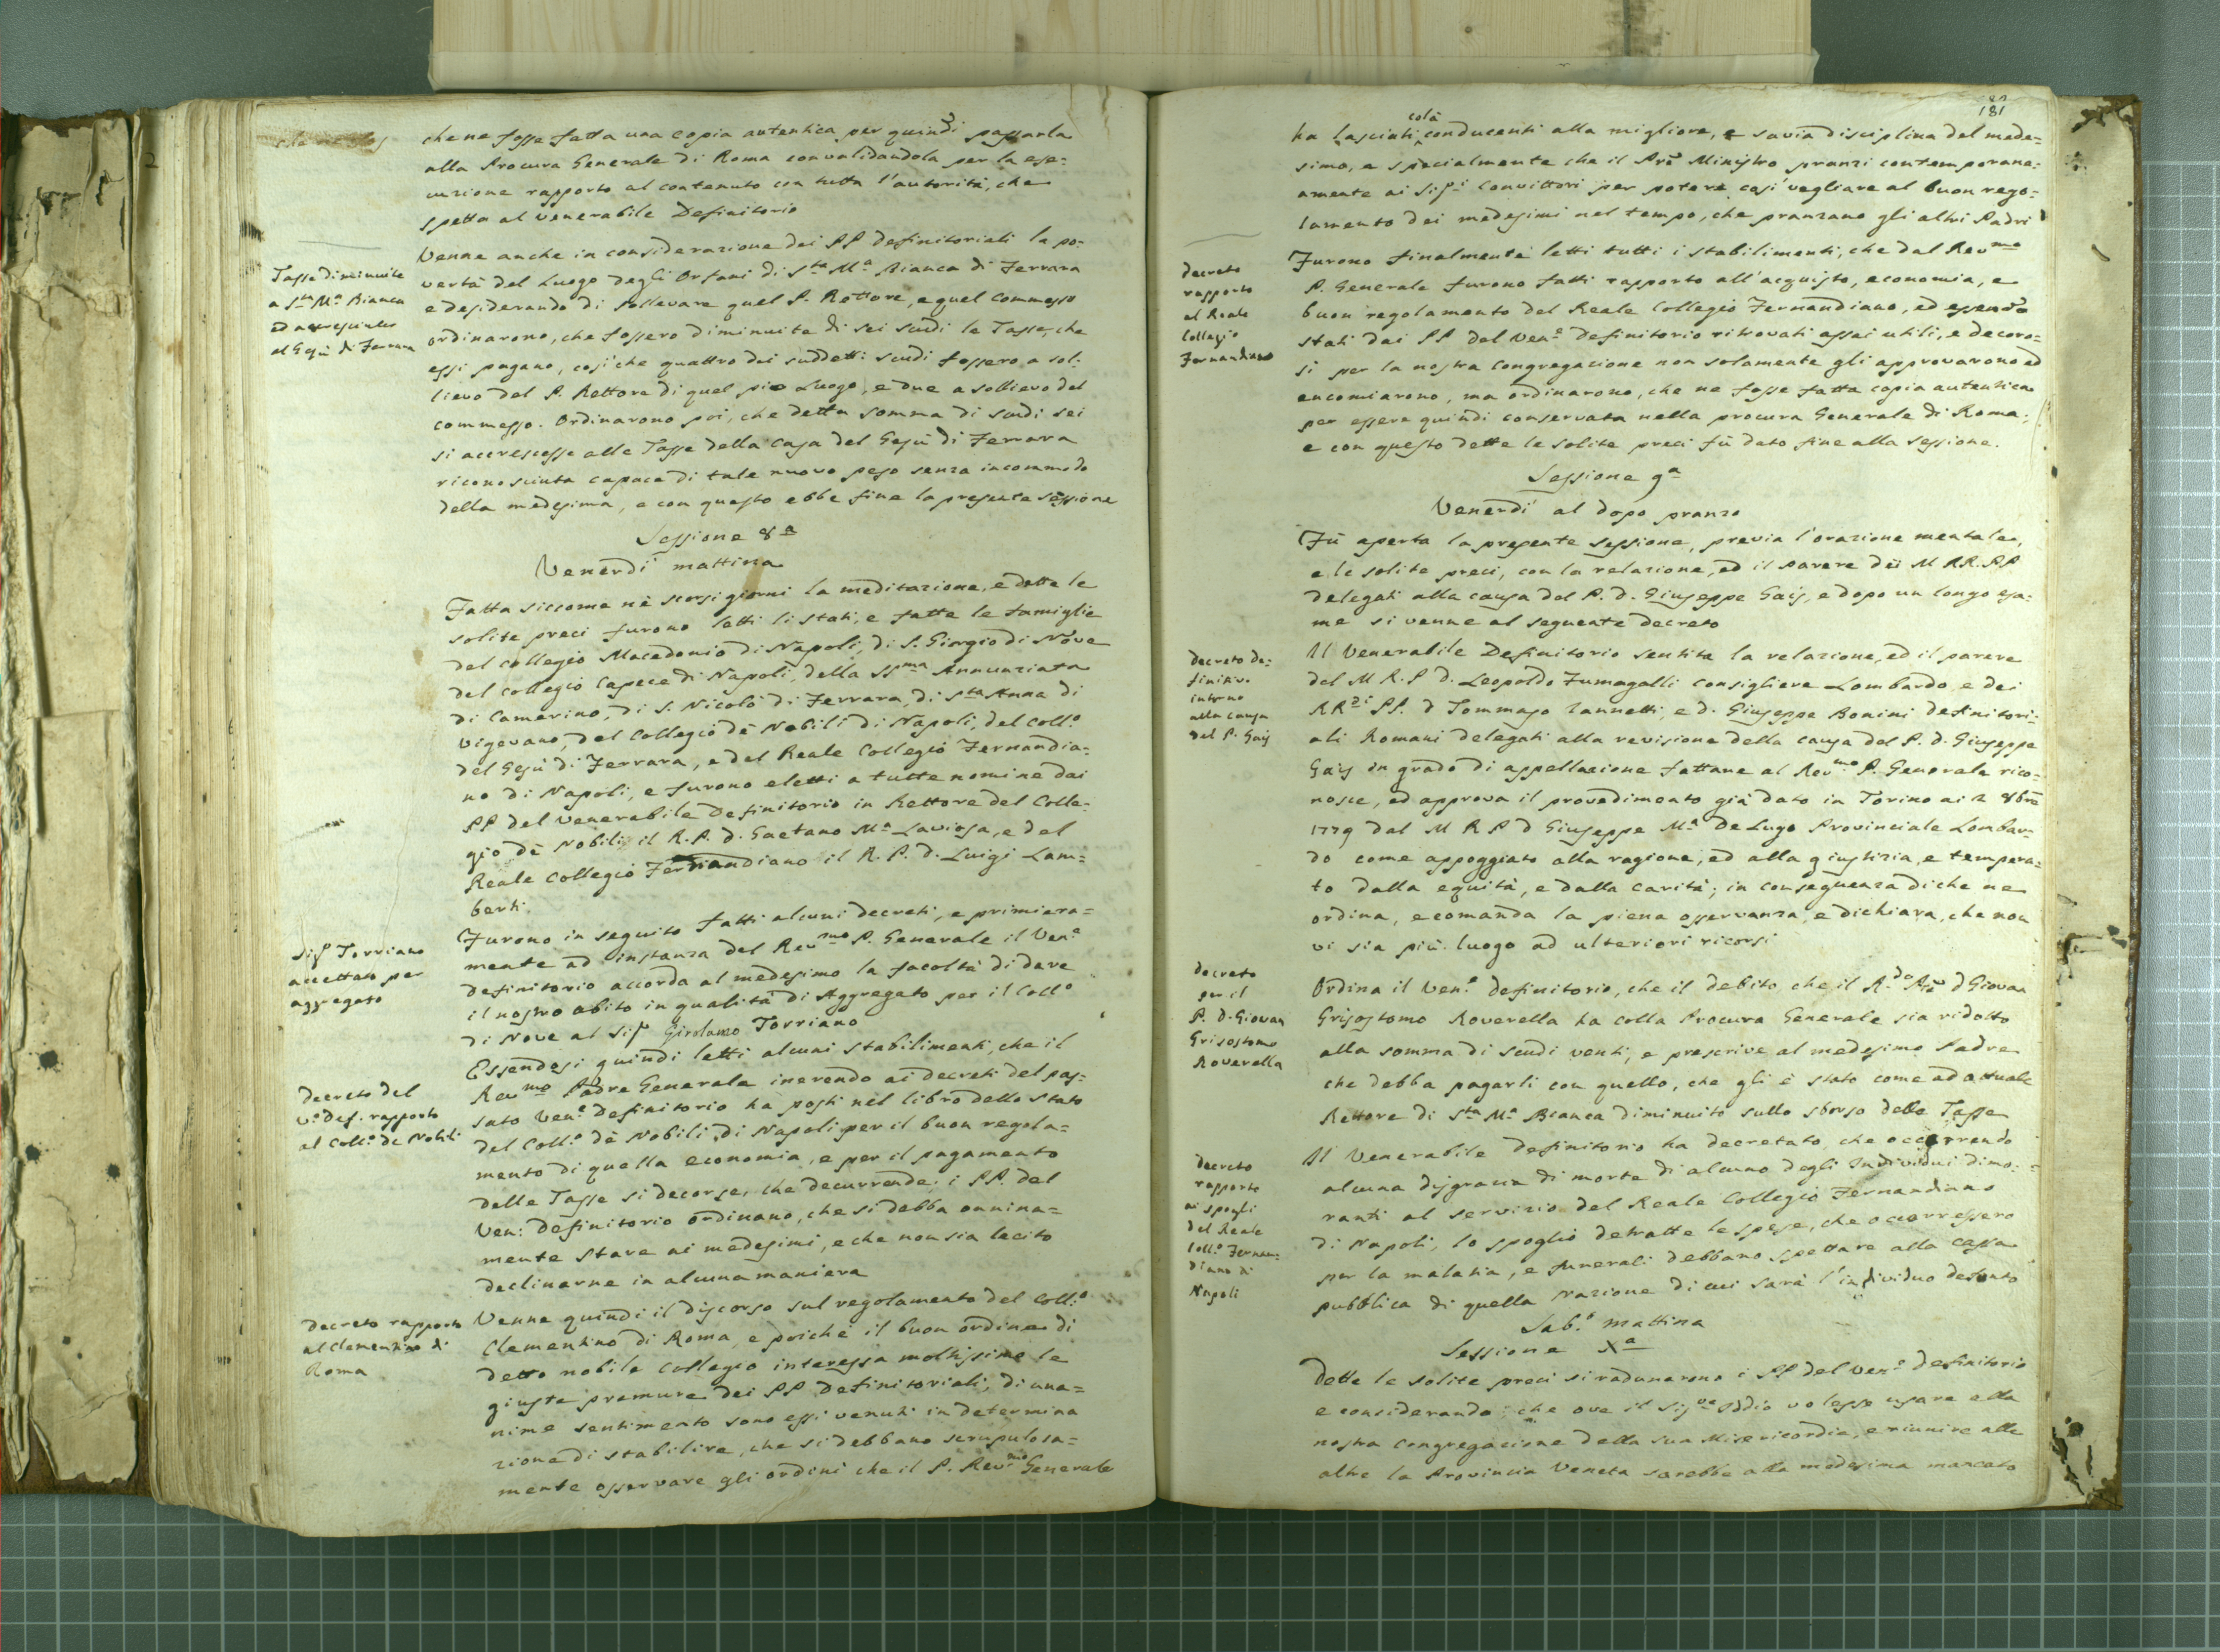 che ne fosse fatta una copia autentica per quindi passarla
alla Procura Generale di Roma convalidandola per la ese=
cuzione rapporto al contenuto con tutta l'autorità, che
spetta al venerabile Definitorio
Tasse diminuite
a Sta Ma Bianca
ed accresciute
al Gesù di Ferrara
Venne anche in considerazione dei PP definitoriali la po=
vertà del Luogo degli Orfani di Sta Ma Bianca di Ferrara
e desiderando di sollevare quel P. Rettore, e quel Commesso
ordinarono, che fossero diminuite di sei scudi le Tasse, che
essi pagano, così che quattro dei suddetti scudi fossero a sol=
lievo del P. Rettore di quel pio Luogo, e due a sollievo del
commesso. Ordinarono poi, che detta somma di scudi sei
si accrescesse alle Tasse della Casa del Gesù di Ferrara
riconosciuta capace di tale nuovo peso senza incommodo
della medesima, e con questo ebbe fine la presente sessione
Sessione 8a
Venerdì mattina
Fatta siccome nè scorsi giorni la meditazione, e dette le
solite preci furono letti li stati, e fatte le famiglie
del Collegio Macedonio di Napoli, di S. Giorgio di Nove
del Collegio Capece di Napoli, della SSma Annunziata
di Camerino, di S. Nicolò di Ferrara, di Sta Anna di
Vigevano, del Collegio dè Nobili di Napoli, del Coll.o
del Gesù di Ferrara, e del Reale Collegio Fernandia=
no di Napoli, e furono eletti a tutte nomine dai
PP del Venerabile Definitorio in Rettore del Colle=
gio dè Nobili il R.P. d. Gaetano Ma Laviosa, e del
Reale Collegio Fernandiano il R. P. d. Luigi Lam=
berti.
Sigr Torriano
accettato per
aggregato
Furono in seguito fatti alcuni decreti, e primiera=
mente ad instanza del Revmo P. Generale il Ven.e
definitorio accorda al medesimo la facoltà di dare
il nostro abito in qualità di Aggregato per il Coll.o
di Nove al Sigr Girolamo Torriano
Decreto del
V.e Def. rapporto
al Coll.o de Nobili
Essendosi quindi letti alcuni stabilimenti, che il
Revmo Padre Generale inerendo ai decreti del pas=
sato Ven.e Definitorio ha posti nel libro dello stato
del Coll.o dè Nobili di Napoli per il buon regola=
mento di quella economia, e per il pagamento
delle Tasse sì decorse, che decurrende; i PP. del
Ven: Definitorio ordinano, che si debba onnina=
mente stare ai medesimi, e che non sia lecito
declinarne in alcuna maniera
Decreto rapporto
al Clementino di
Roma
Venne quindi il discorso sul regolamento del Coll.o
Clementino di Roma, e poichè il buon ordine di
detto nobile Collegio interessa moltissimo le
giuste premure dei PP Definitoriali, di una=
nime sentimento sono essi venuti in determina
zione di stabilire, che si debbano scrupulosa=
mente osservare gli ordini che il P. Revmo Generale
181
colà
ha lasciati conducenti alla migliore, e savia disciplina del mede=
simo, e specialmente che il Pre Ministro pranzi contemporane=
amente ai Sigri Convittori per potere così vegliare al buon rego=
lamento dei medesimi nel tempo, che pranzano gli altri Padri
Decreto
rapporto
al Reale
Collegio
Fernandiano
Furono finalmente letti tutti i stabilimenti, che dal Revmo
P. Generale furono fatti rapporto all'acquisto, economia, e
buon regolamento del Reale Collegio Fernandiano, ed essendo
stati dai PP del Ven.e Definitorio ritrovati assai utili, e decoro=
si per la nostra Congregazione non solamente gli approvarono ed
encomiarono, ma ordinarono, che ne fosse fatta copia autentica
per essere quindi conservata nella procura Generale di Roma;
e con questo dette le solite preci fù dato fine alla sessione.
Sessione 9a
Venerdì al dopo pranzo
Fù aperta la presente sessione, previa l'orazione mentale,
e le solite preci, con la relazione, ed il parere dei M RR. PP
delegati alla causa del P. d. Giuseppe Gais, e dopo un longo esa=
me si venne al seguente decreto
Decreto de=
finitivo
intorno
alla causa
del P. Gais
Il Venerabile Definitorio sentita la relazione, ed il parere
del M R. P d. Leopoldo Fumagalli Consigliere Lombardo e dei
RRdi PP. d Tommaso Zannetti, e d. Giuseppe Bonini definitori=
ali Romani delegati alla revisione della causa del P. d. Giuseppe
Gais in grado di appellazione fattane al Revmo P. Generale rico=
nosce, ed approva il provedimento già dato in Torino ai 2 8bre
1779 dal M R P d Giuseppe Ma De Lugo Provinciale Lombar=
do come appoggiato alla ragione, ed alla giustizia, e tempera=
to dalla equità, e dalla carità; in conseguenza di che ne
ordina, e comanda la piena osservanza, e dichiara, che non
vi sia più luogo ad ulteriori ricorsi
Decreto
per il
P. d. Giovan
Grisostomo
Roverella
Ordina il Ven.e Definitorio, che il debito, che il R.do Pre d Giovan
Grisostomo Roverella ha colla Procura Generale sia ridotto
alla somma di scudi venti, e prescrive al medesimo Padre
che debba pagarli con quello, che gli è stato come ad attuale
Rettore di Sta Ma Bianca diminuito sullo sborso delle Tasse
Decreto
rapporto
ai spogli
del Reale
Coll.o Fernan=
diano di
Napoli
Il Venerabile Definitorio ha decretato che occorrendo
alcuna disgrazia di morte di alcuno degli Individui dimo=
ranti al servizio del Reale Collegio Fernandiano
di Napoli, lo spoglio detratte le spese, che occorressero
per la malatia, e funerali debbano spettare alla cassa
pubblica di quella Nazione di cui sarà l'individuo defonto
Sab.o mattina
Sessione Xa
Dette le solite preci si radunarono i PP del Ven.e Definitorio
e considerando; che ove il Sigre Iddio volesse usare alla
nostra Congregazione della sua Misericordia, e riunire alle
altre la Provincia Veneta sarebbe alla medesima mancato